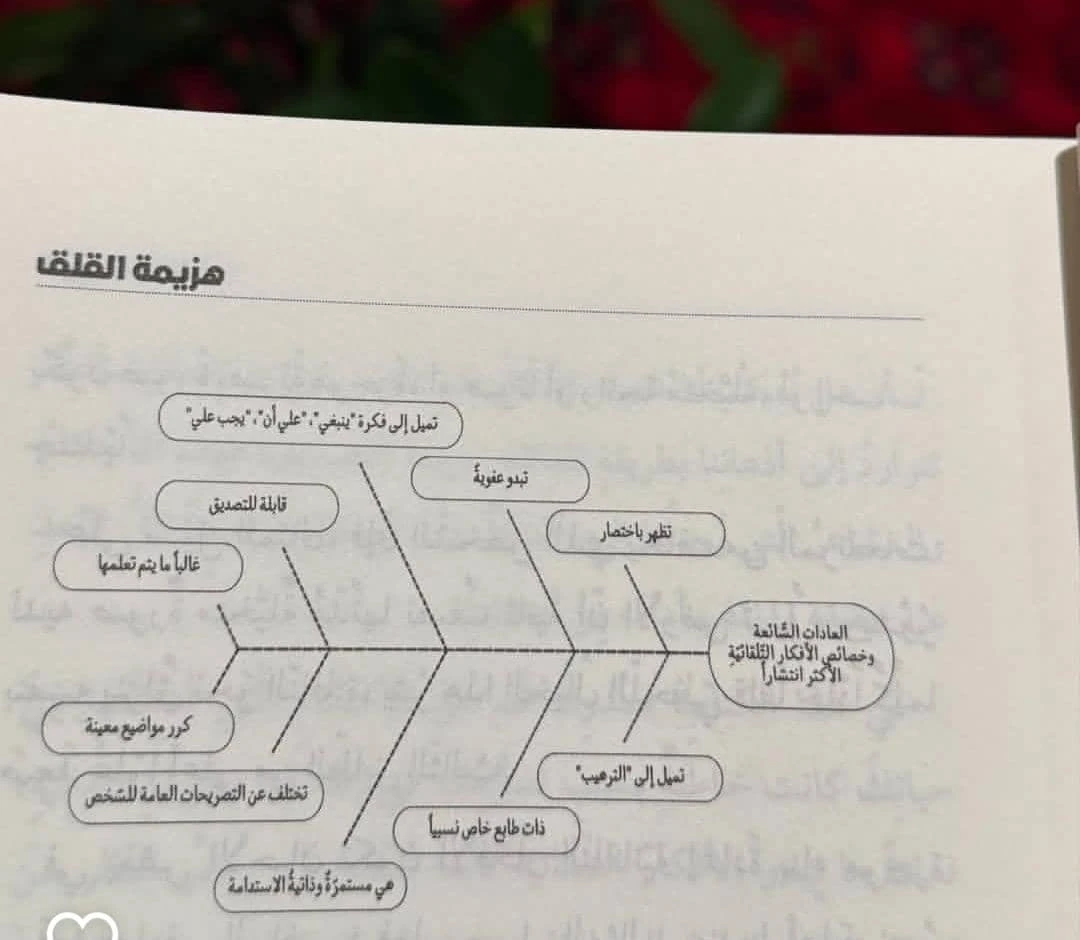 هزيمة القلق
تميل إلى فكرة "ينبغي"، "علي أن"، "يجب علي"
تبدو عفويةً
تظهر باختصار
قابلة للتصديق
غالباً ما يتم تعلمها
العادات الشَّائعة
وخصائص الأفكار التِّلقائيّةِ
الأكثر انتشاراً
تميل إلى "الترهيب"
ذات طابع خاص نسبياً
هي مستمرّةٌ وذاتيةُ الاستدامة
تختلف عن التصريحات العامة للشخص
كرر مواضيع معينة